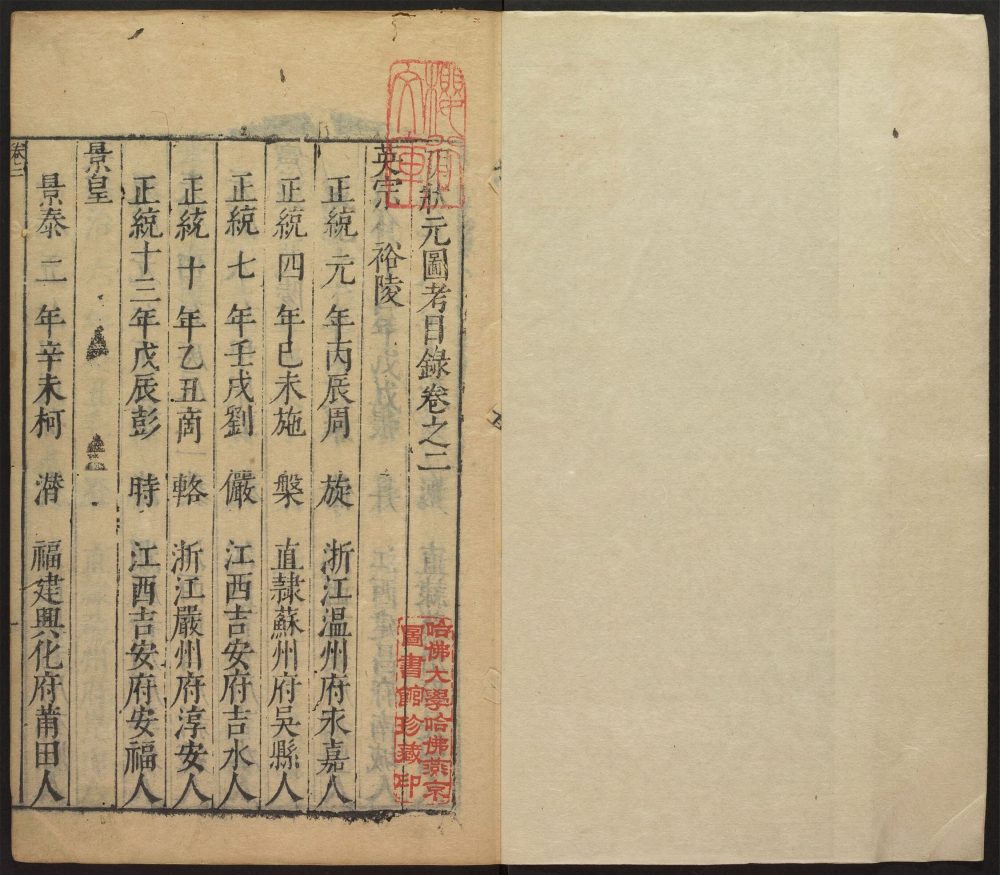 狀元圖考目錄卷之二
英宗 裕陵
正統元年丙辰周 旋 浙江温州府永嘉人
正統四年己未施 槃 直隷蘇州府吳縣人
正統七年壬戌劉 儼 江西吉安府吉水人
正統十年乙丑商 輅 浙江嚴州府淳安人
正統十三年戊辰彭 時 江西吉安府安福人
景皇
景泰二年辛未柯 潛 福建興化府莆田人
卷二
哈佛大學哈佛燕京
圖書館珍藏印